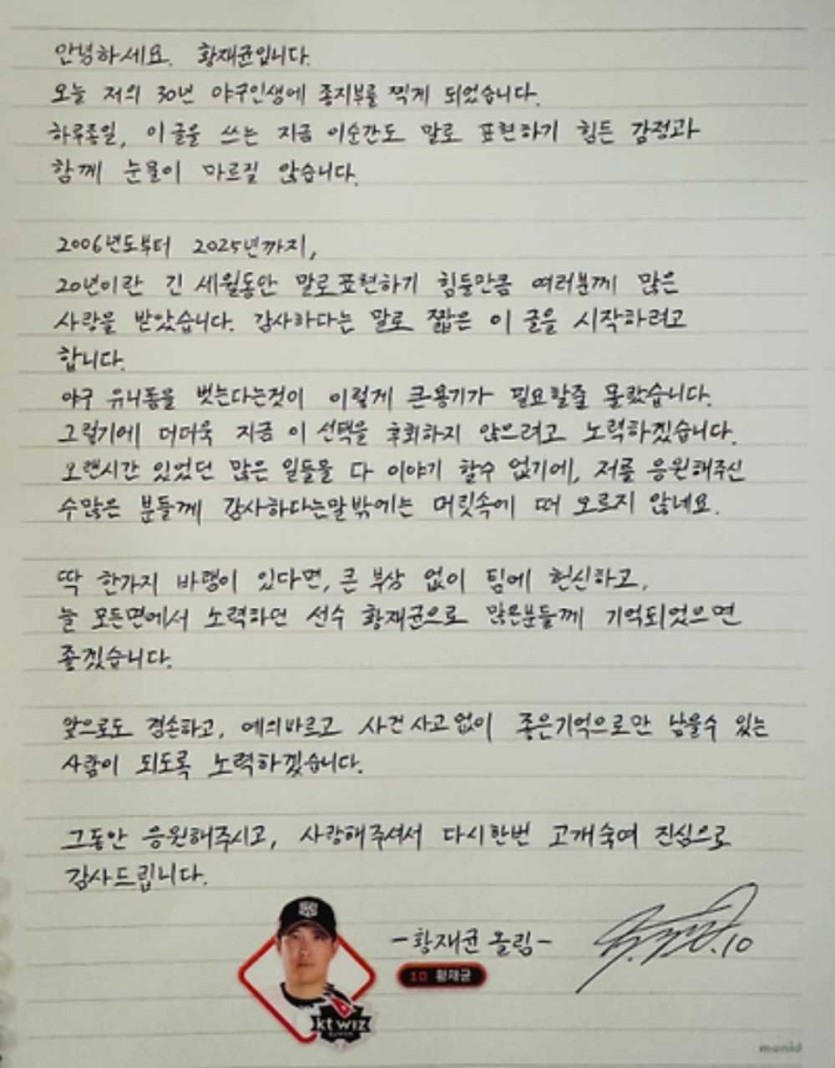 안녕하세요. 황재균입니다.
오늘 저의 30년 야구인생에 종지부를 찍게 되었습니다.
하루종일, 이글을 쓰는 지금 이순간도 말로 표현하기 힘든 감정과
함께 눈물이 마르질 않습니다.
2006년도부터 2025년까지,
20년이란 긴 세월동안 말로표현하기 힘들만큼 여러분께 많은
사랑을 받았습니다. 감사하다는 말로 짧은 이 글을 시작하려고
합니다.
야구 유니폼을 벗는다는것이 이렇게 큰용기가 필요할줄 몰랐습니다.
그렇기에 더더욱 지금 이 선택을 후회하지 않으려고 노력하겠습니다.
오랜시간 있었던 많은 일들을 다 이야기 할수 없기에, 저를 응원해주신
수많은 분들께 감사하다는말밖에는 머릿속에 떠 오르지 않네요.
딱 한가지 바램이 있다면, 큰 부상 없이 팀에 헌신하고,
늘 모든면에서 노력하던 선수 황재균으로 많은분들께 기억되었으면
좋겠습니다.
앞으로도 겸손하고, 예의바르고 사건 사고 없이 좋은기억으로만 남을수 있는
사람이 되도록 노력하겠습니다.
그동안 응원해주시고, 사랑해주셔서 다시한번 고개숙여 진심으로
감사드립니다.
-황재균 올림-
.10
10 황재균
kt wiz
munid